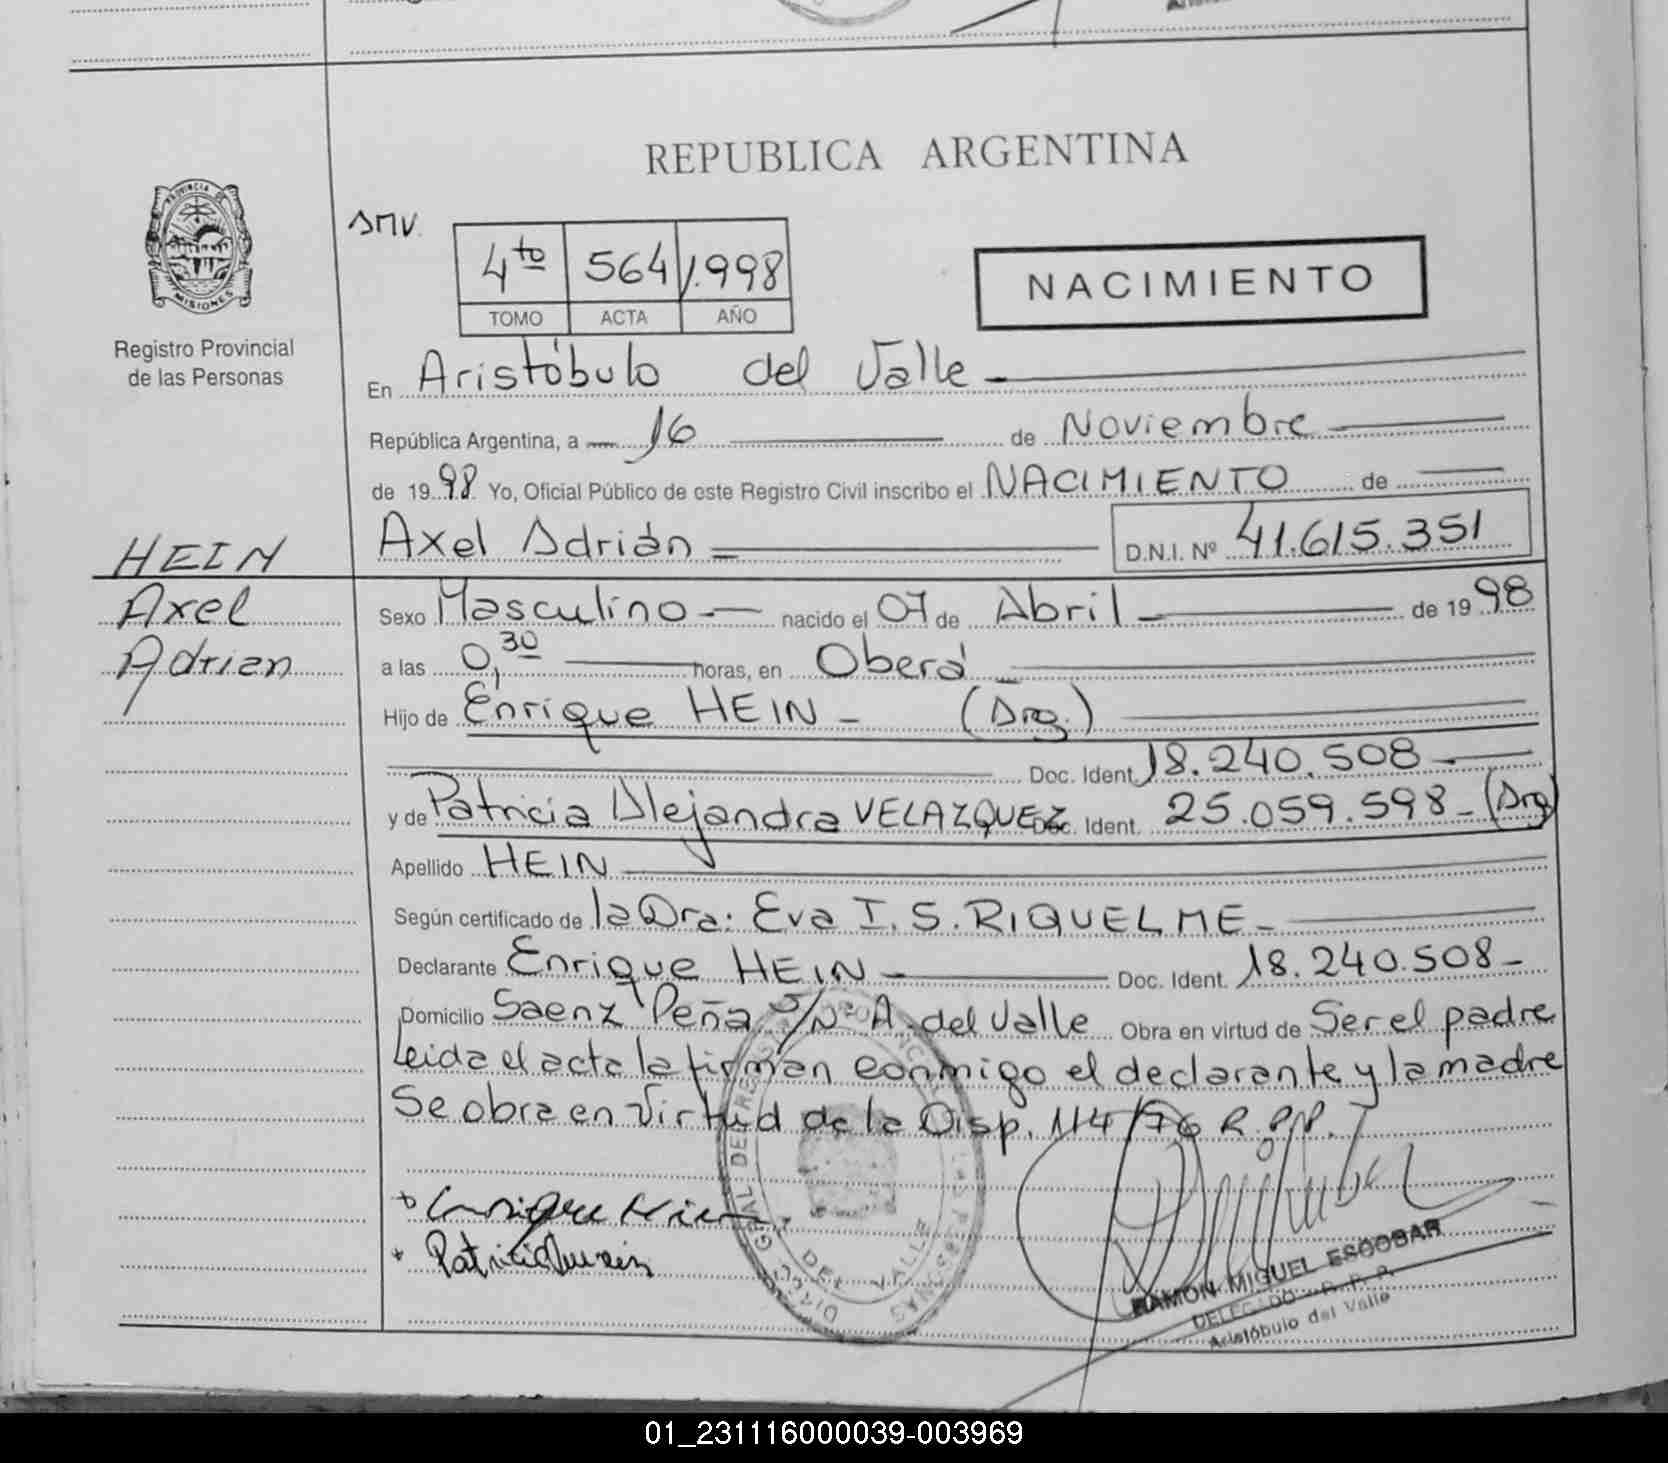 REPUBLICA ARGENTINA
PROVINCIA DE
MISIONES
Registro Provincial
de las Personas
SMV.
4to 564 1.998
TOMO ACTA AÑO
NACIMIENTO
En Aristóbulo del Valle
República Argentina, a 16 de Noviembre
de 1998 Yo, Oficial Público de este Registro Civil inscribo el NACIMIENTO de
Axel Adrián D.N.I. Nº 41.615.351
HEIN
Axel
Adrian
Sexo Masculino nacido el 07 de Abril de 1998
a las 0,30 horas, en Oberá
Hijo de Enrique HEIN - (Arg.)
Doc. Ident. 18.240.508
y de Patricia Alejandra VELAZQUEZ Doc. Ident. 25.059.598 - (Arg)
Apellido HEIN
Según certificado de la Dra: Eva I. S. RIQUELME -
Declarante Enrique HEIN Doc. Ident. 18.240.508 -
Domicilio Saenz Peña S/Nº A. del Valle Obra en virtud de Ser el padre
Leida el acta la firman conmigo el declarante y la madre
Se obra en virtud de la Disp. 114/76 R.P.P.
Enrique Hein
Patricia
DEL VALLE
RAMON MIGUEL ESCOBAR
DELEGADO R. P. P.
Aristóbulo del Valle
01_231116000039-003969